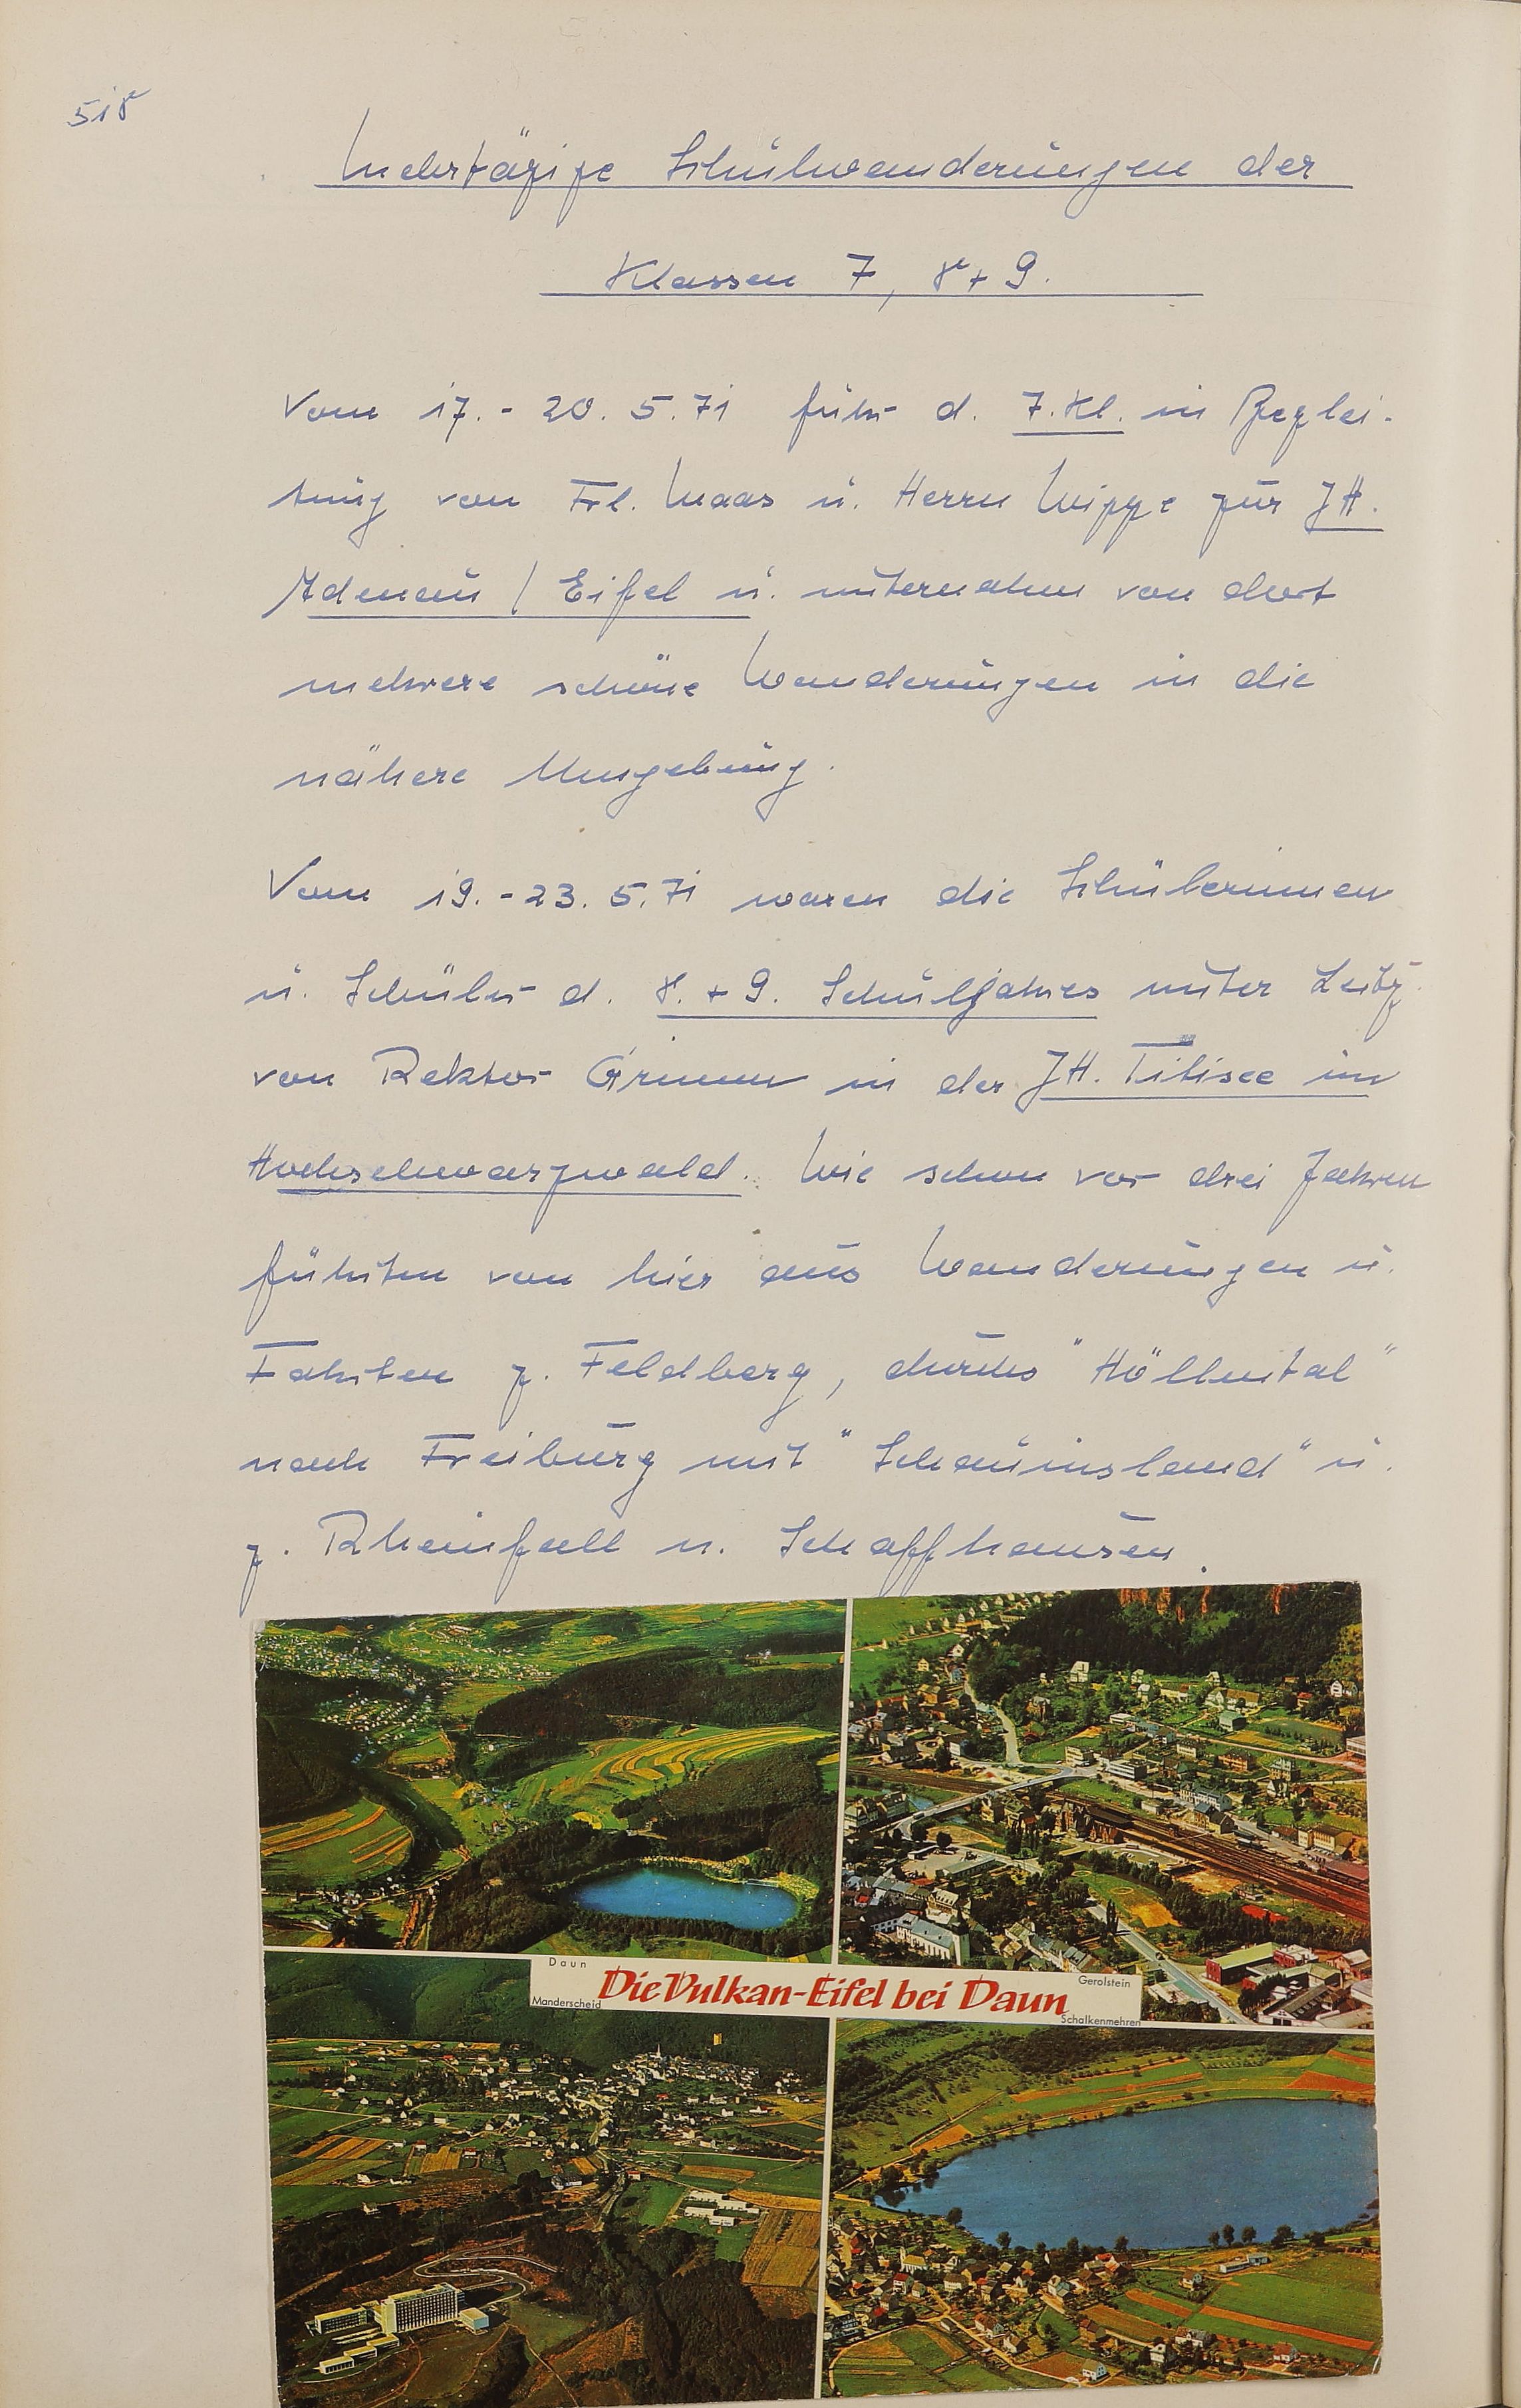 518
Mehrtägige Schulwanderungen der
Klassen 7, 8 + 9.
Vom 17. - 20. 5. 71 fuhr d. 7. Kl. in Beglei-
tung von Frl. Maas u. Herrn Wippe zur JH.
Adenau / Eifel u. unternahm von dort
mehrere schöne Wanderungen in die
nähere Umgebung.
Vom 19. - 23. 5. 71 waren die Schülerinnen
u. Schüler d. 8. + 9. Schuljahres unter Leitg.
von Rektor Grimm in der JH. Titisee im
Hochschwarzwald. Wie schon vor drei Jahren
führten von hier aus Wanderungen u.
Fahrten z. Feldberg, durchs "Höllental"
nach Freiburg mit "Schauinsland" u.
z. Rheinfall n. Schaffhausen.
Daun
Gerolstein
Die Vulkan-Eifel bei Daun
Manderscheid
Schalkenmehren